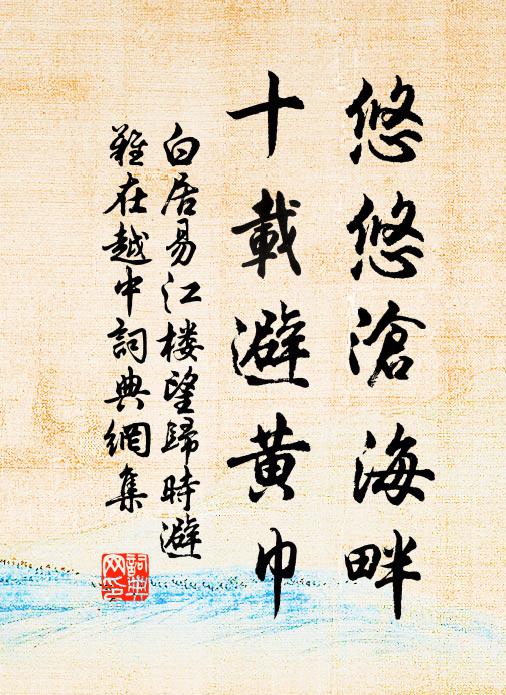 悠悠滄海畔
十載避黄巾
白居易江楼望歸時避
難在越中詞典網集
詞典